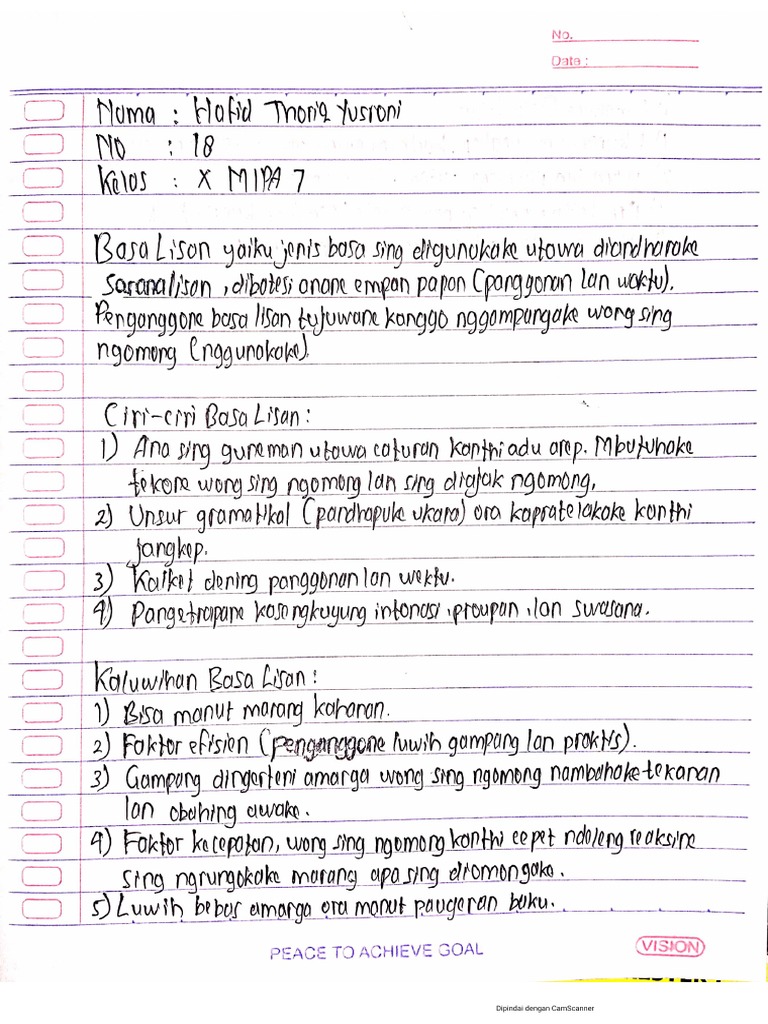 No.
Date :
Nama : Hafid Thoriq Yusroni
No : 18
Kelas : X MIPA 7
Basa Lisan yaiku jenis basa sing digunakake utawa diandharake
sarana lisan, dibatesi anane empan papan (panggonan lan wektu).
Penganggone basa lisan tujuwane kanggo nggampangake wong sing
ngomong (nggunakake).
Ciri-ciri Basa Lisan :
1) Ana sing guneman utawa caturan kanthi adu arep. Mbutuhake
tekane wong sing ngomong lan sing diajak ngomong,
2) Unsur gramatikal (pandhapuke ukara) ora kapratelakake kanthi
jangkep.
3) Kaiket dening panggonan lan wektu.
4) Pangetrapane kasengkuyung intonasi, praupan, lan swasana.
Kaluwihan Basa Lisan :
1) Bisa manut marang kahanan.
2) Faktor efisien (penganggone luwih gampang lan praktis).
3) Gampang dingerteni amarga wong sing ngomong nambahake tekanan
lan obahing awake.
4) Faktor kecepatan, wong sing ngomong kanthi cepet ndeleng reaksine
sing ngrungokake marang apa sing diomongake.
5) Luwih bebas amarga ora manut paugeran baku.
PEACE TO ACHIEVE GOAL
VISION
Dipindai dengan CamScanner